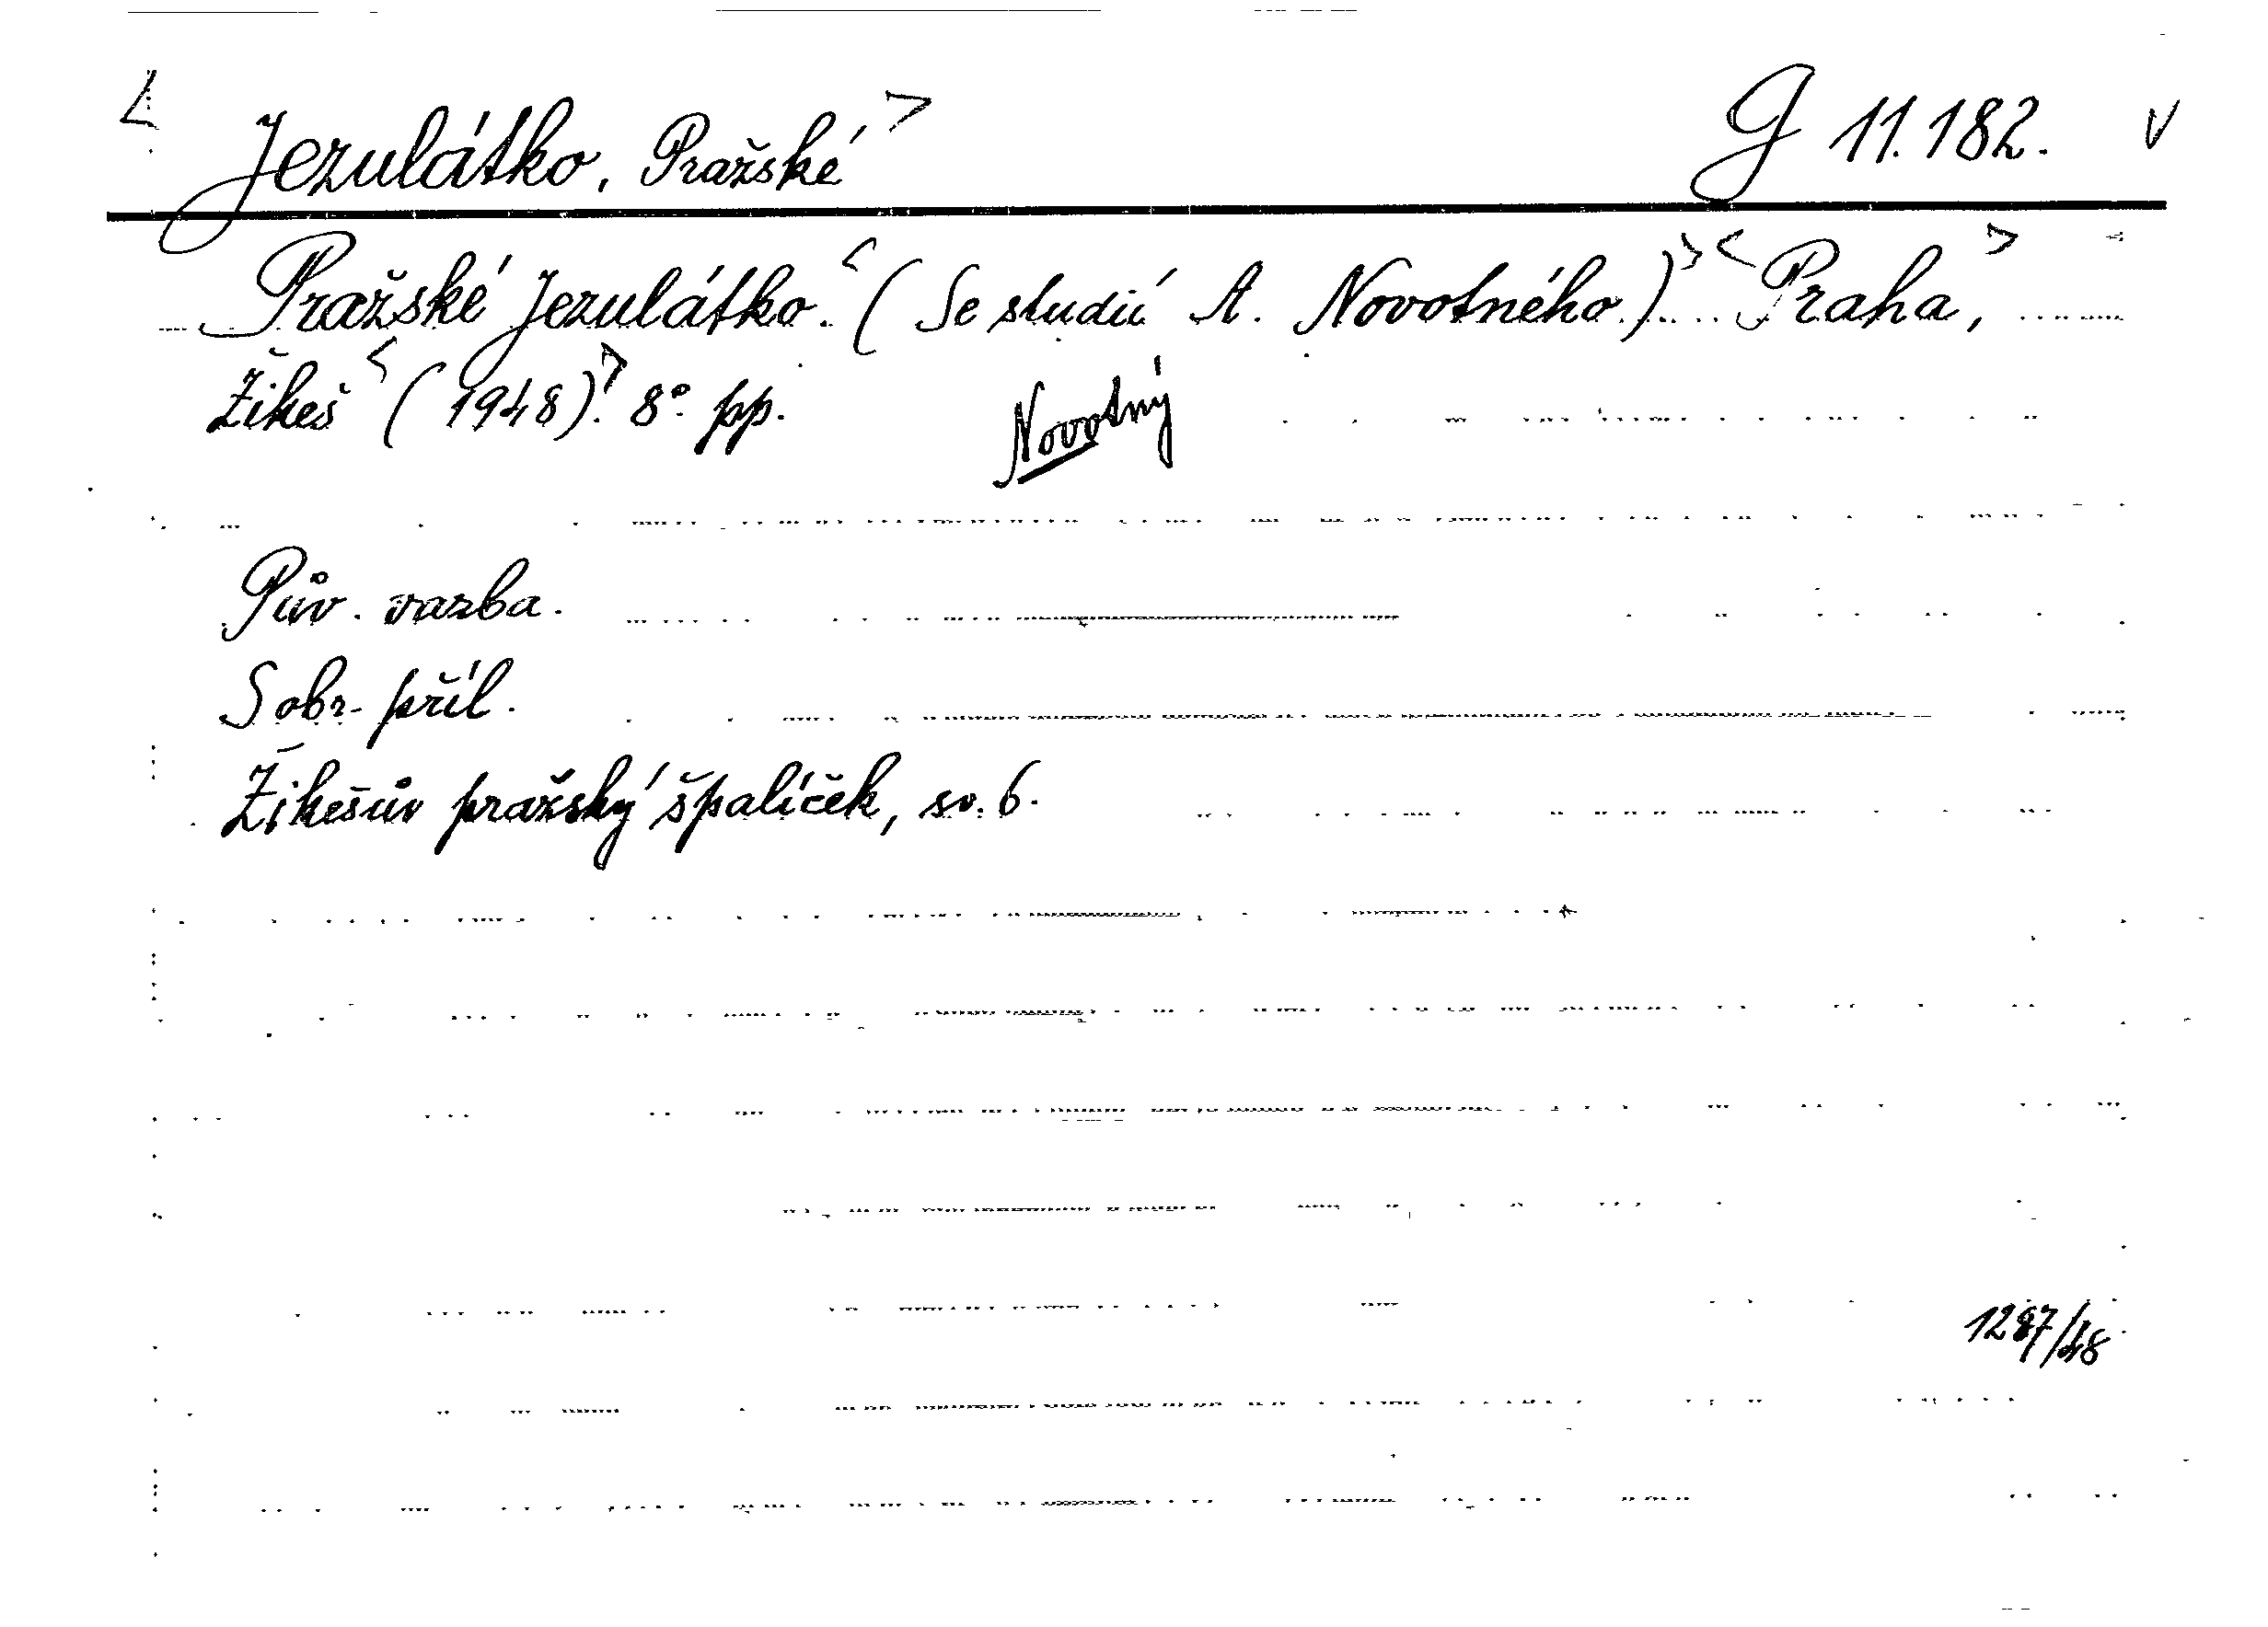 < Jezulátko, Pražské > G 11.182. v
Pražské Jezulátko. <(Se studií A. Novotného.)> <Praha,>
Žikeš <(1948).> 8° pp.
Novotný
Pův. vazba.
S obr. příl.
Žikešův pražský špalíček, sv. 6.
1287/48